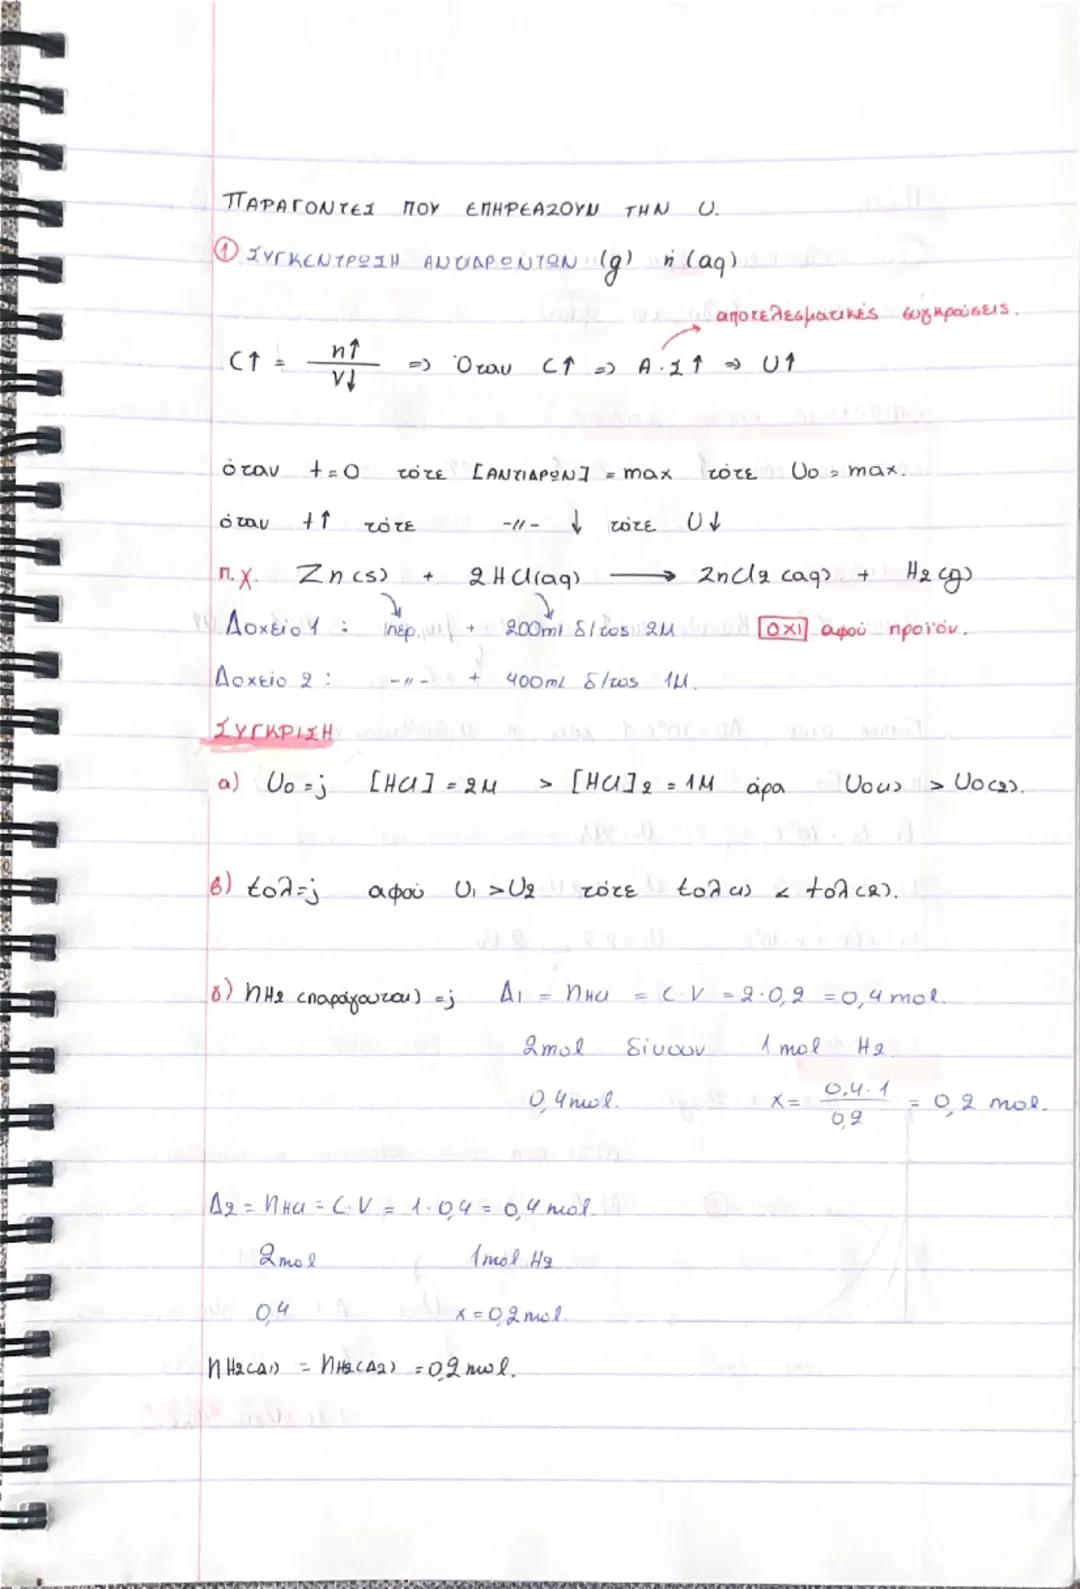 ΠΑΡΑΓΟΝΤΕΣ ΠΟΥ ΕΠΗΡΕΑΖΟΥΝ ΤΗΝ U.
① ΣΥΓΚΕΝΤΡΩΣΗ ΑΝΤΙΔΡΩΝΤΩΝ (g) ή (aq)
αποτελεσματικές συγκρούσεις.
C↑ = n↑ / V↓ => Όταν C↑ => Α.Σ↑ => U↑
όταν t=0 τότε [ΑΝΤΙΔΡΩΝ] = max τότε Uo = max.
όταν t↑ τότε -//- ↓ τότε U↓
π.χ. Zn(s) + 2HCl(aq) → ZnCl2(aq) + H2(g)
Δοχείο 1 : περ. + 200ml δ/τος 2M ΟΧΙ αφού προϊόν.
Δοχείο 2 : -//- + 400ml δ/τος 1M.
ΣΥΓΚΡΙΣΗ
α) Uo =; [HCl] = 2M > [HCl]2 = 1M άρα Uo(1) > Uo(2).
β) tολ=; αφού U1 > U2 τότε tολ(1) < tολ(2).
γ) nH2 (παράγονται) =; Δ1 = nHCl = C·V = 2·0,2 = 0,4 mol.
2mol δίνουν 1 mol H2.
0,4mol. x= 0,4·1 / 0,2 = 0,2 mol.
Δ2 = nHCl = C·V = 1·0,4 = 0,4 mol.
2mol 1mol H2
0,4 x = 0,2 mol.
nH2(Δ1) = nH2(Δ2) = 0,2 mol.